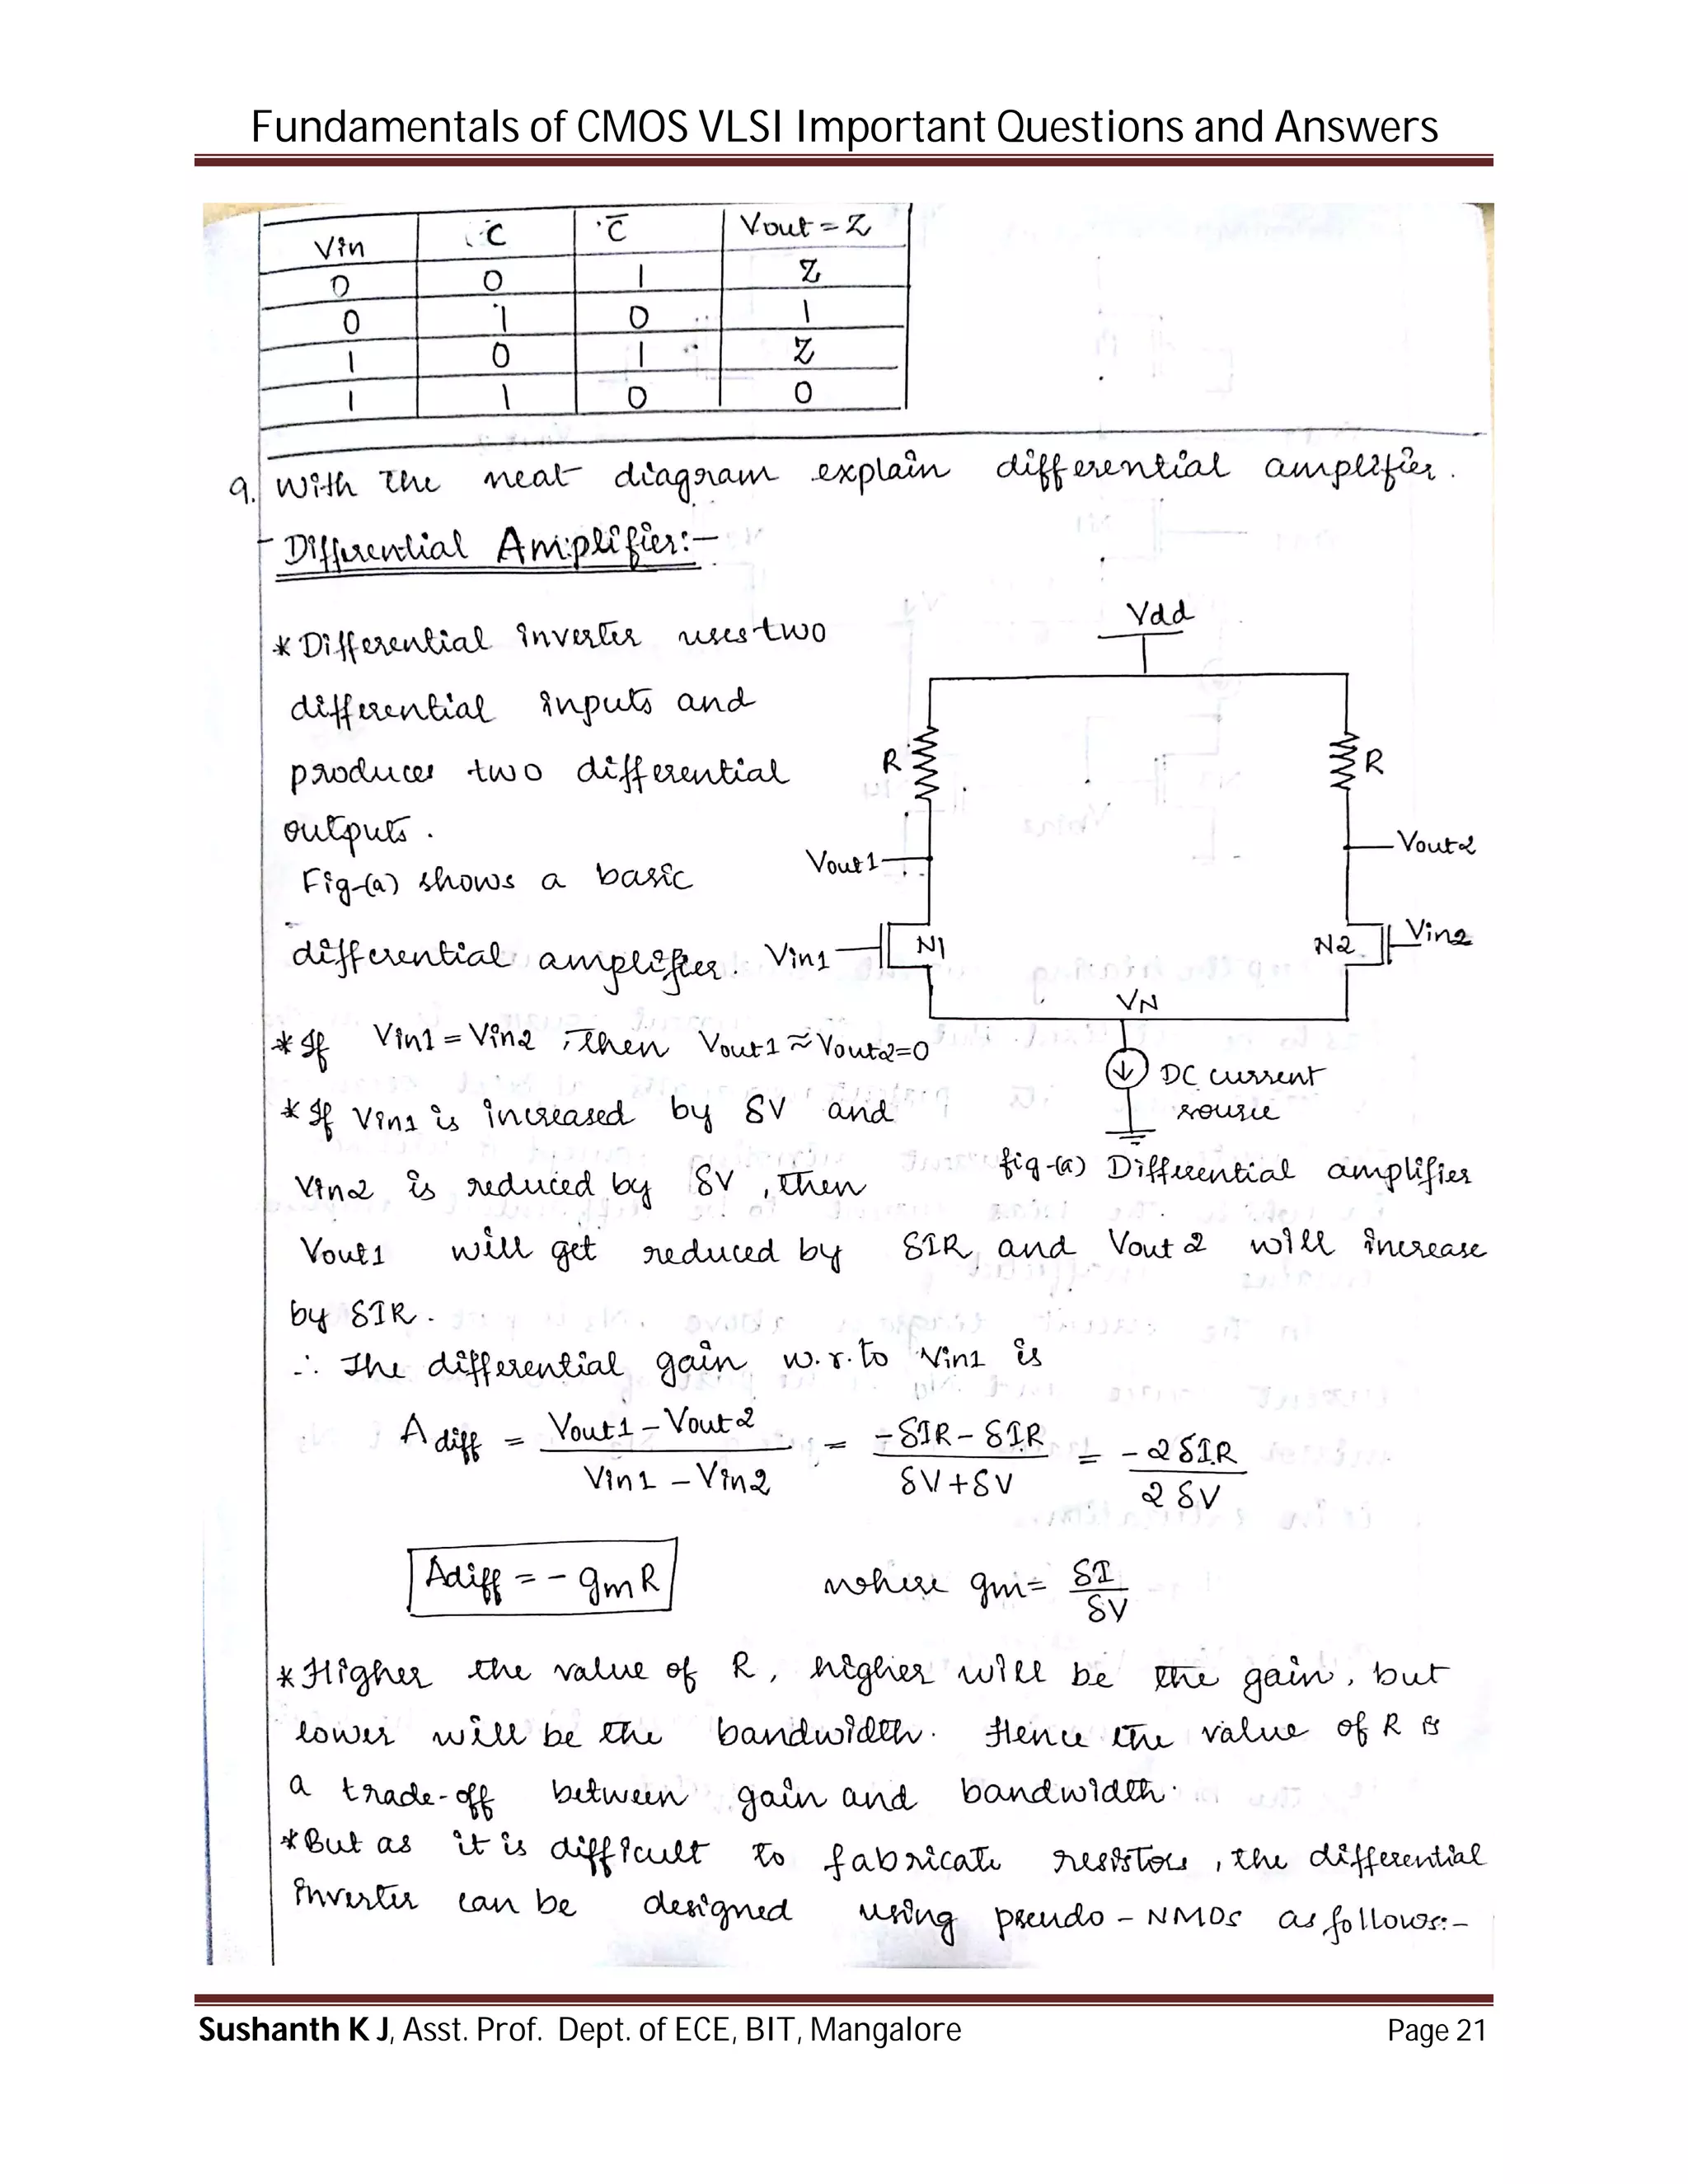 Fundamentals of CMOS VLSI Important Questions and Answers
Vin C C̅ Vout = Z
0 0 1 Z
0 1 0 1
1 0 1 Z
1 1 0 0
9. With the neat diagram explain differential amplifier.
- Differential Amplifier:-
* Differential inverter uses two
differential inputs and
produces two differential
outputs.
Fig-(a) shows a basic
differential amplifier.
Vdd
R
R
Vout1
Vout2
Vin1
N1
N2
Vin2
VN
DC current
source
fig-(a) Differential amplifier
* If Vin1 = Vin2, then Vout1 ≈ Vout2=0
* If Vin1 is increased by δV and
Vin2 is reduced by δV, then
Vout1 will get reduced by δIR and Vout2 will increase
by δIR.
∴ The differential gain w.r.to Vin1 is
A diff = (Vout1 - Vout2) / (Vin1 - Vin2) = (-δIR - δIR) / (δV + δV) = -2δIR / 2δV
Adiff = - gmR where gm = δI/δV
* Higher the value of R, higher will be the gain, but
lower will be the bandwidth. Hence the value of R is
a trade-off between gain and bandwidth.
* But as it is difficult to fabricate resistors, the differential
inverter can be designed using pseudo-NMOS as follows:-
Sushanth K J, Asst. Prof. Dept. of ECE, BIT, Mangalore Page 21